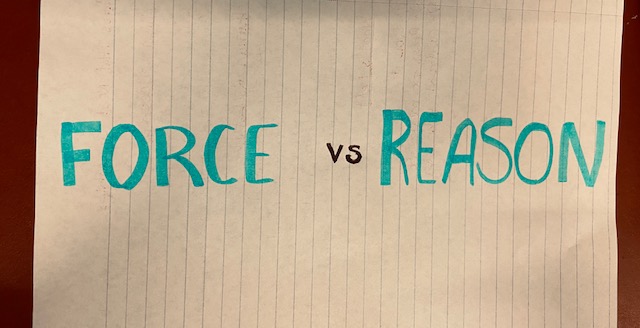 FORCE vs REASON